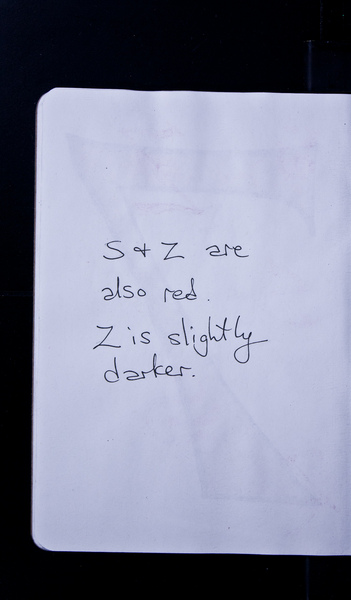 S & Z are
also red.
Z is slightly
darker.